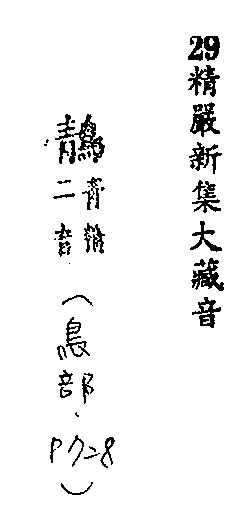 29精嚴新集大藏音
鶄
青精
二音
(鳥部.P728)